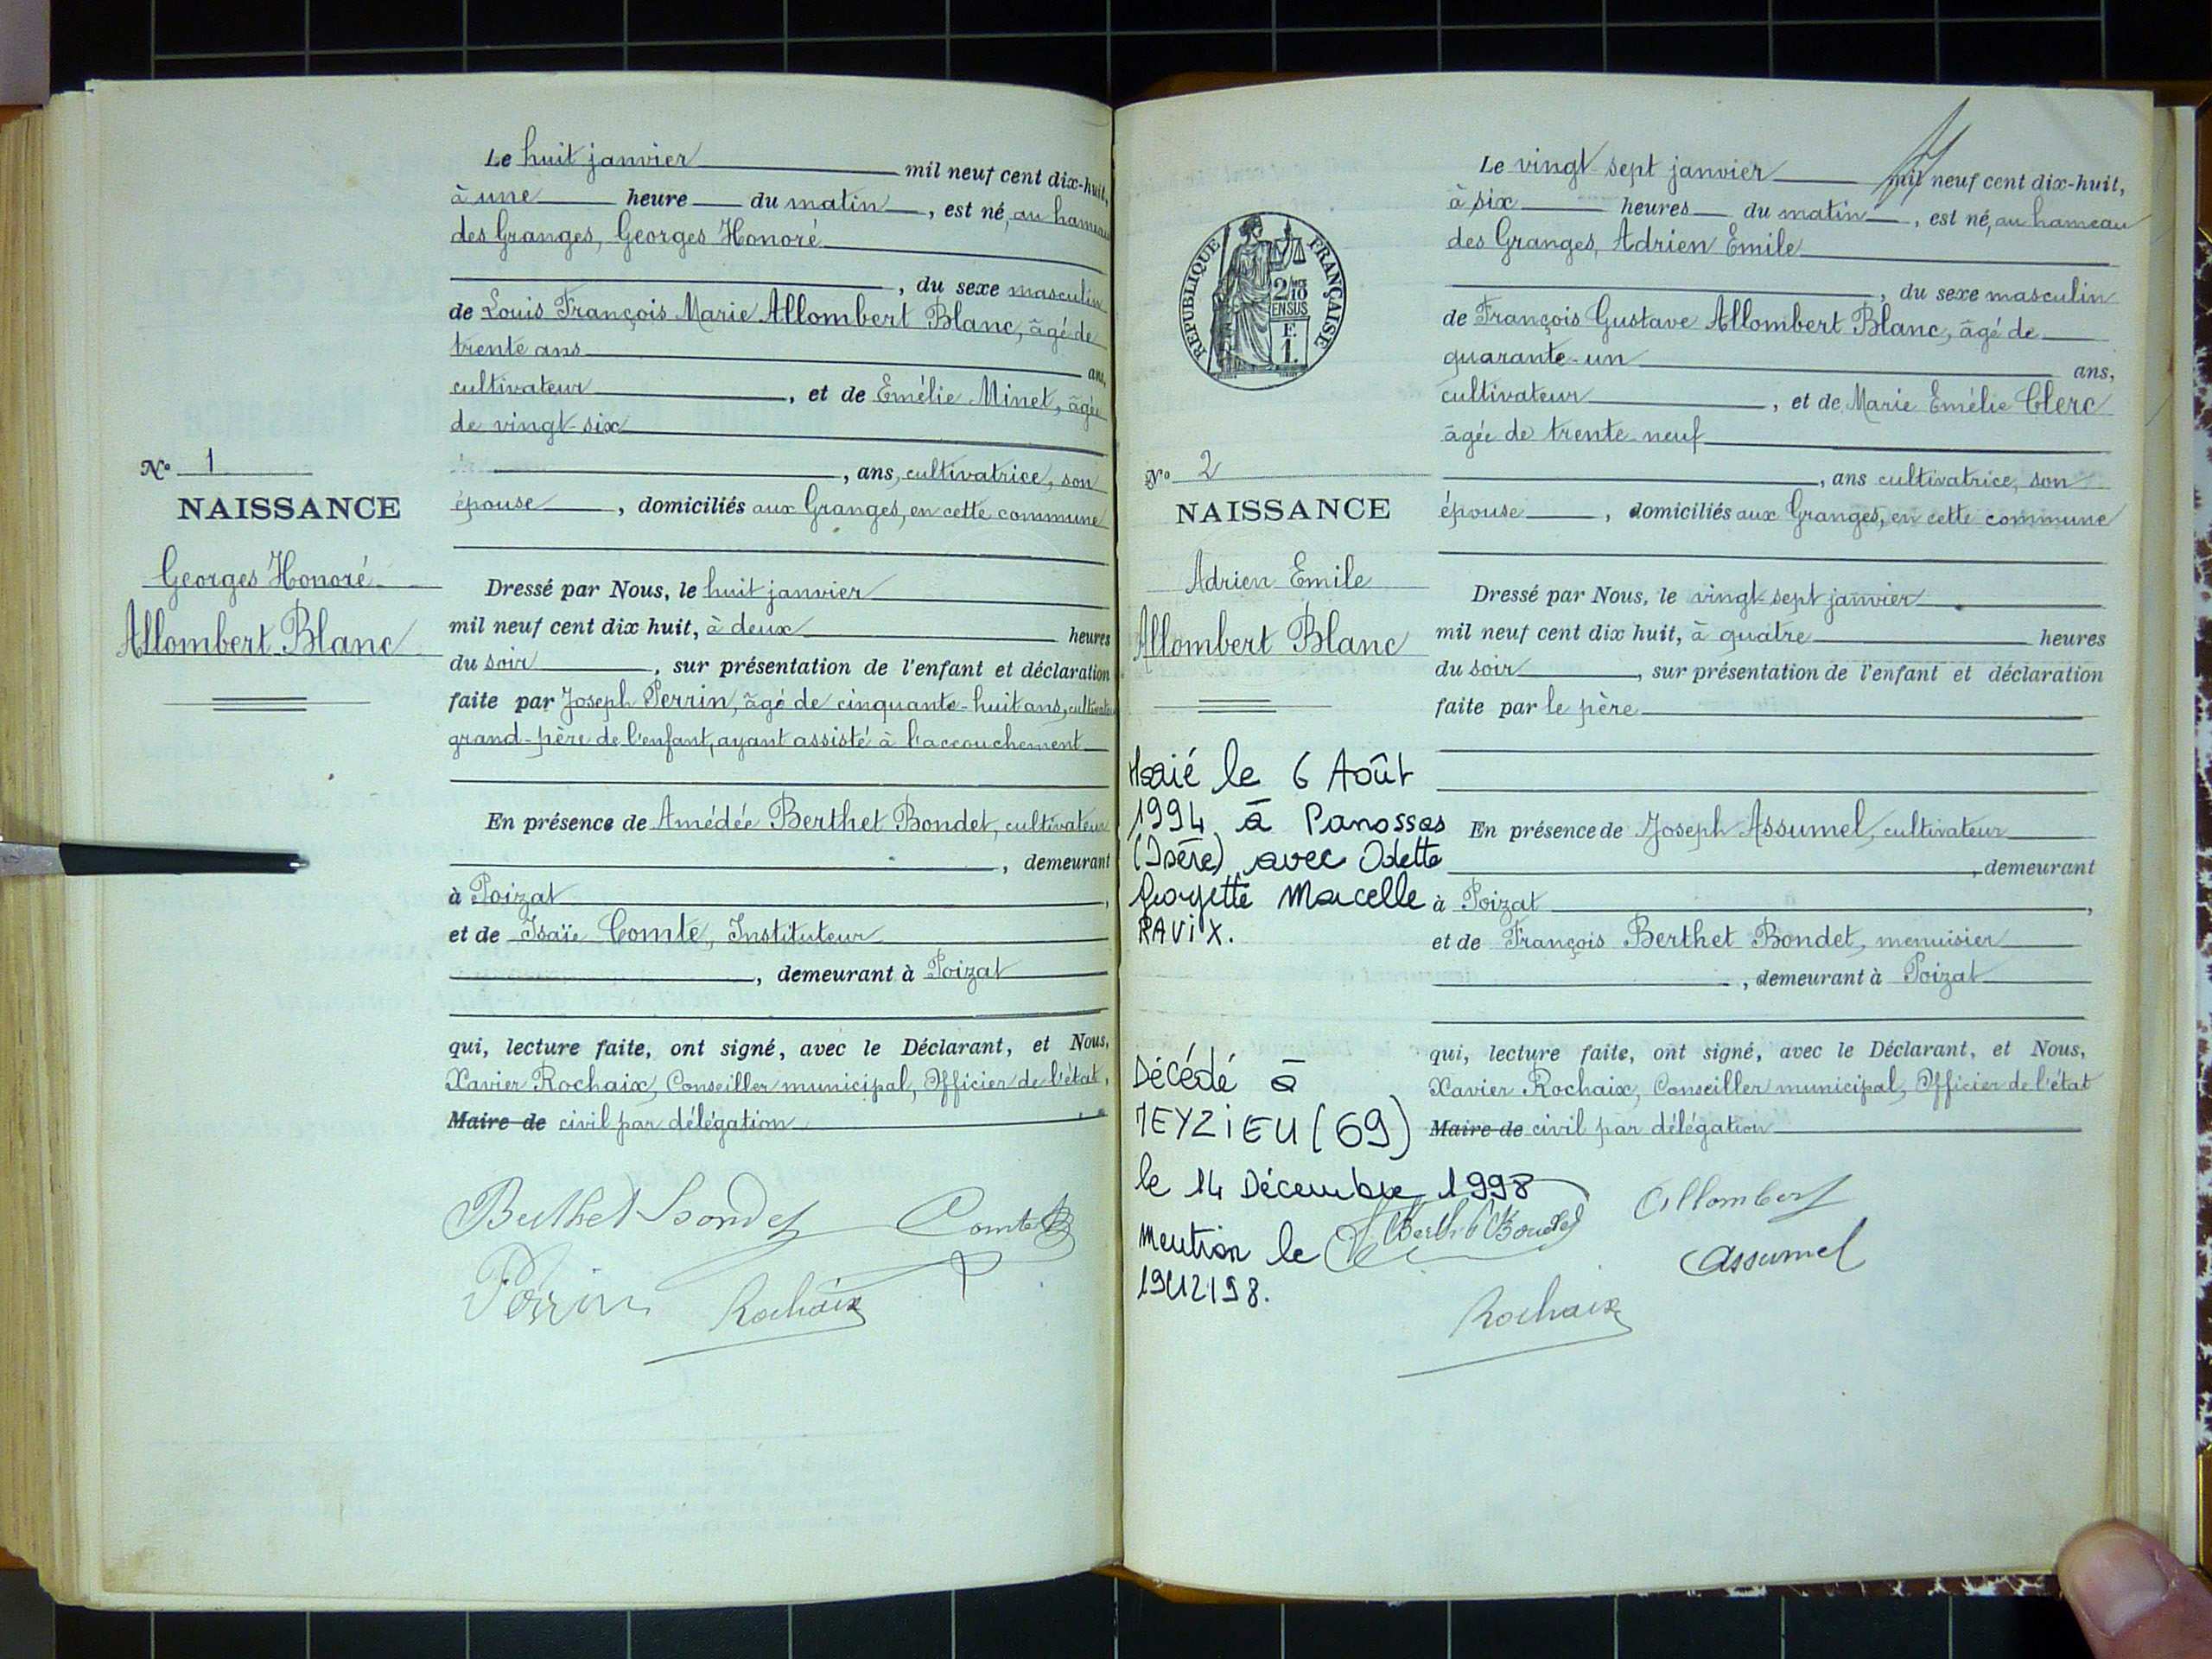 Le huit janvier mil neuf cent dix-huit,
à une heure du matin, est né, au hameau
des Granges, Georges Honoré
, du sexe masculin
de Louis François Marie Allombert Blanc, âgé de
trente ans ans,
cultivateur, et de Emélie Minet, âgée
de vingt-six
, ans, cultivatrice, son
épouse, domiciliés aux Granges, en cette commune
N° 1
NAISSANCE
Georges Honoré
Allombert Blanc
Dressé par Nous, le huit janvier
mil neuf cent dix huit, à deux heures
du soir, sur présentation de l'enfant et déclaration
faite par Joseph Perrin, âgé de cinquante-huit ans, cultivateur
grand-père de l'enfant, ayant assisté à l'accouchement
En présence de Amédée Berthet Bondet, cultivateur
, demeurant
à Poizat,
et de Isaïe Comte, Instituteur
, demeurant à Poizat
qui, lecture faite, ont signé, avec le Déclarant, et Nous,
Xavier Rochaix, Conseiller municipal, Officier de l'état,
Maire de civil par délégation
Berthet Bondet Comte
Perrin Rochaix
Le vingt sept janvier mil neuf cent dix-huit,
à six heures du matin, est né, au hameau
des Granges, Adrien Emile
, du sexe masculin
de François Gustave Allombert Blanc, âgé de
quarante-un ans,
cultivateur, et de Marie Emélie Clerc
âgée de trente-neuf
, ans cultivatrice, son
épouse, domiciliés aux Granges, en cette commune
REPUBLIQUE FRANÇAISE
2/10
EN SUS
F.
1.
N° 2
NAISSANCE
Adrien Emile
Allombert Blanc
Dressé par Nous, le vingt-sept janvier
mil neuf cent dix huit, à quatre heures
du soir, sur présentation de l'enfant et déclaration
faite par le père
En présence de Joseph Assumel, cultivateur
, demeurant
à Poizat,
et de François Berthet Bondet, menuisier
, demeurant à Poizat
qui, lecture faite, ont signé, avec le Déclarant, et Nous,
Xavier Rochaix, Conseiller municipal, Officier de l'état
Maire de civil par délégation
Marié le 6 Août
1994 à Panossas
(Isère) avec Odette
Georgette Marcelle
RAVIX.
Décédé à
MEYZIEU (69)
le 14 Décembre 1998
Mention le
19/12/98.
Berthet Bondet Allombert
Assumel
Rochaix